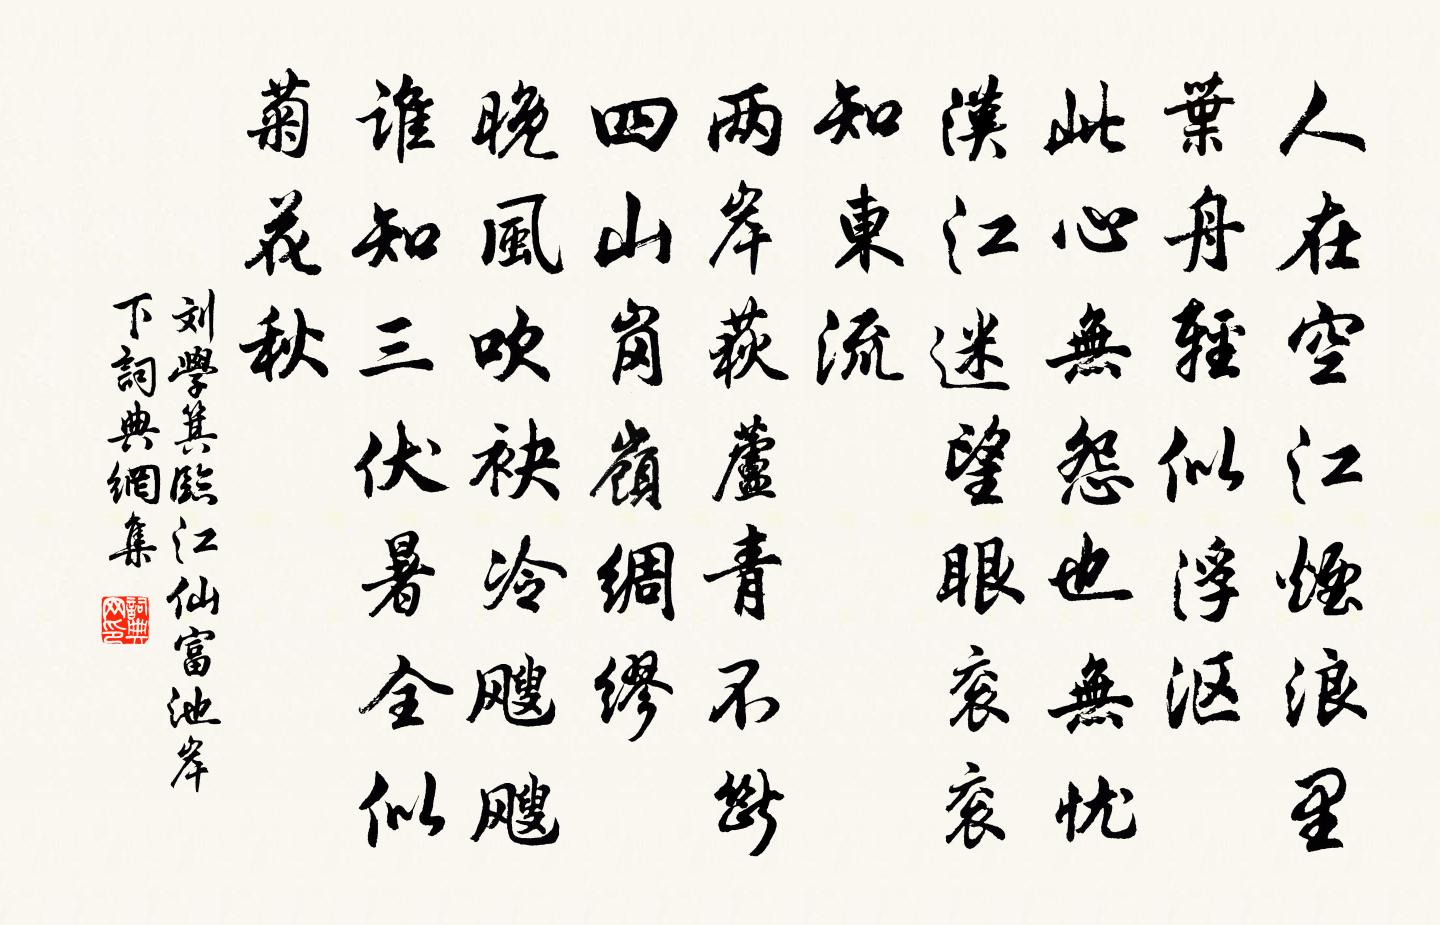 人在空江煙浪里
葉舟輕似浮沤
此心無怨也無忧
漢江迷望眼衮衮
知東流
两岸萩蘆青不斷
四山崗嶺綢繆
晚風吹袂冷飕飕
誰知三伏暑全似
菊花秋
刘學箕臨江仙富池岸
下詞典網集
詞典网印